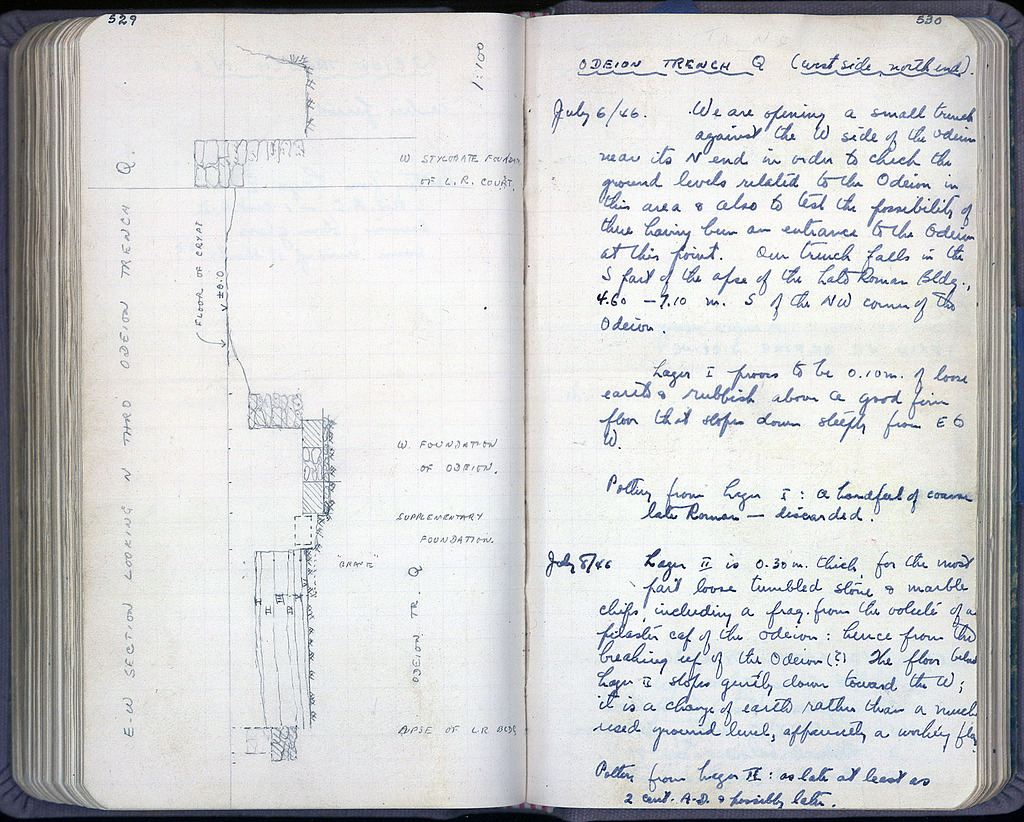 529
1:100
E-W SECTION LOOKING N THRO ODEION TRENCH Q.
W STYLOBATE FOUNDA
OF L.R. COURT.
FLOOR OF CRYPT
V ±0.0
W. FOUNDATION
OF ODEION.
SUPPLEMENTARY
FOUNDATION.
"GRAVE"
ODEION TR. Q
I
II
III
IV
V
APSE OF L.R. BLDG
530
ODEION TRENCH Q (west side, north end).
July 6/46. We are opening a small trench
against the W side of the Odeion
near its N end in order to check the
ground levels related to the Odeion in
this area & also to test the possibility of
there having been an entrance to the Odeion
at this point. Our trench falls in the
S part of the apse of the Late Roman Bldg.,
4.60 – 7.10 m. S of the NW corner of the
Odeion.
Layer I proves to be 0.10 m. of loose
earth & rubbish above a good firm
floor that slopes down steeply from E to
W.
Pottery from layer I: a handful of coarse
late Roman — discarded.
July 8/46 Layer II is 0.30 m. thick, for the most
part loose tumbled stone & marble
chips, including a frag. from the volute of a
pilaster cap of the Odeion: hence from the
breaking up of the Odeion (?) The floor below
layer II slopes gently down toward the W;
it is a change of earth rather than a much
used ground level, apparently a working floor
Pottery from layer II: as late at least as
2 cent. A.D. & possibly later.